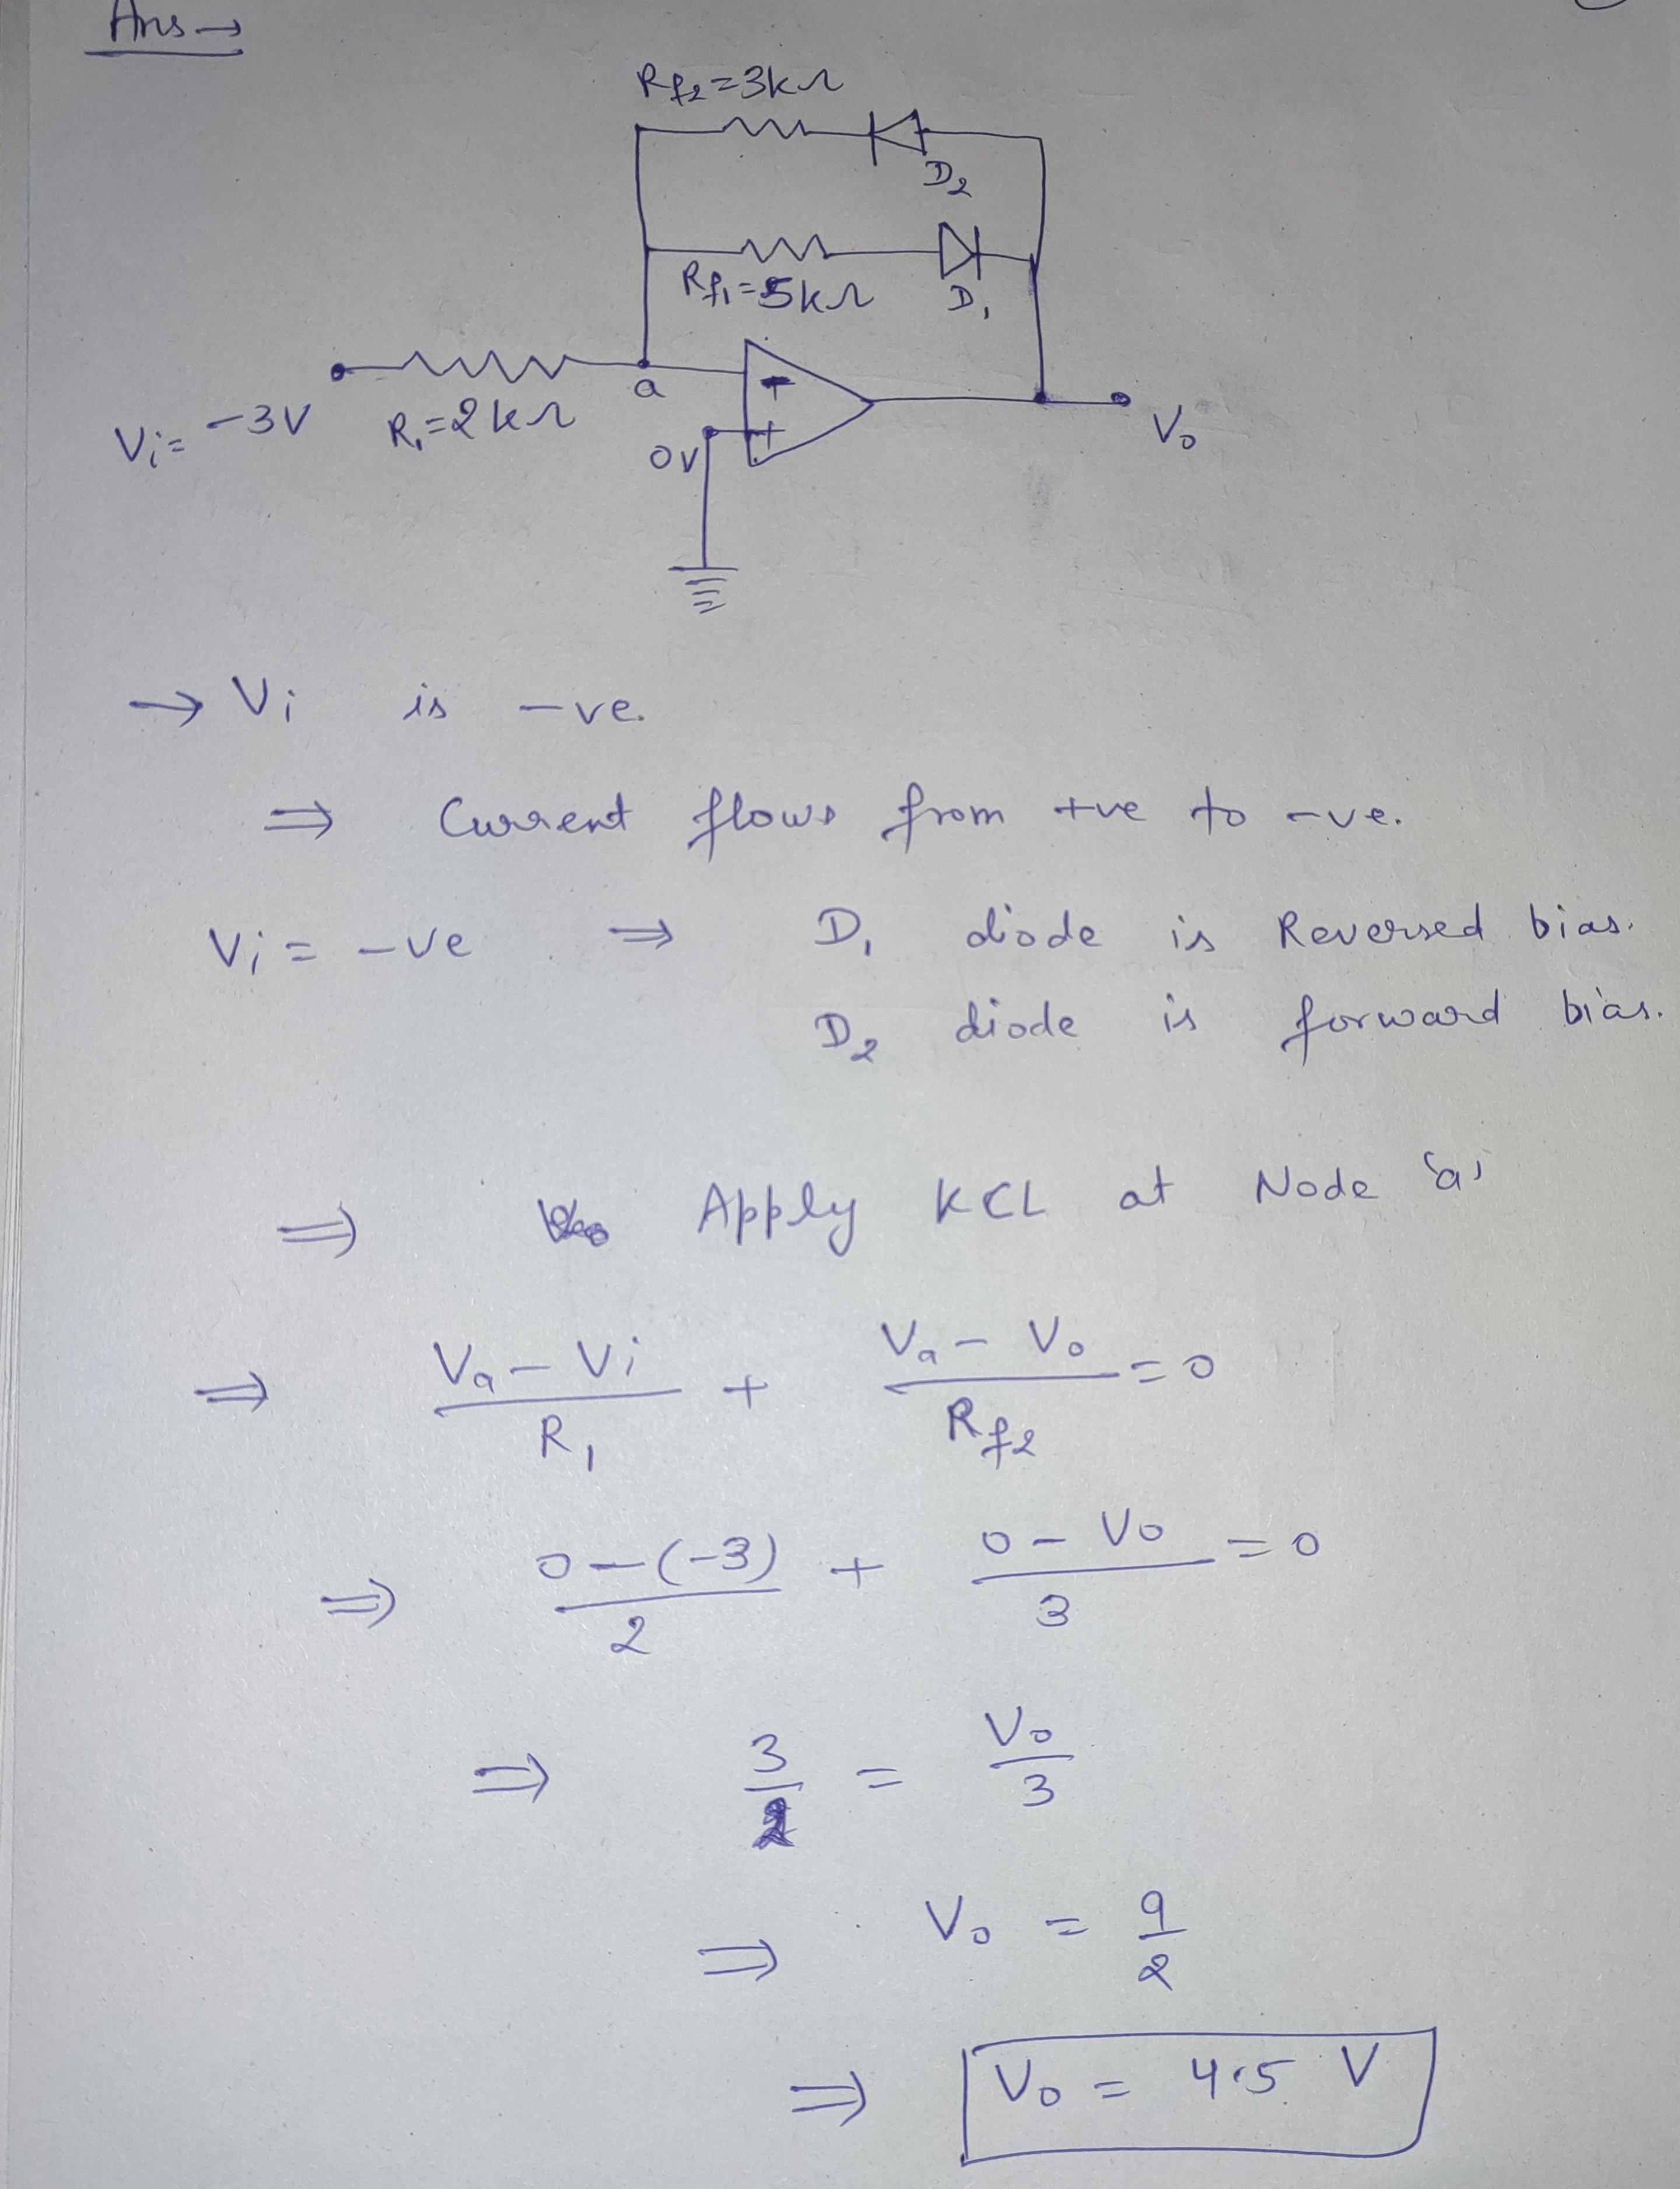 Ans →
Rf2 = 3kΩ
D2
Rf1 = 5kΩ
D1
a
Vi = -3V
R1 = 2kΩ
0V
+
Vo
→ Vi is -ve.
⇒ Current flows from +ve to -ve.
Vi = -ve ⇒ D1 diode is Reversed bias.
D2 diode is forward bias.
⇒ Apply KCL at Node 'a'
⇒ (Va - Vi)/R1 + (Va - Vo)/Rf2 = 0
⇒ (0 - (-3))/2 + (0 - Vo)/3 = 0
⇒ 3/2 = Vo/3
⇒ Vo = 9/2
⇒ Vo = 4.5 V